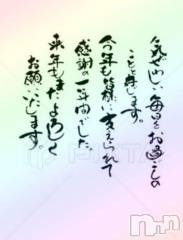 気ぜわしい毎日をお過ごしの
ことと存じます。
今年も皆様に支えられて
感謝の一年間でした。
来年もまたよろしく
お願いいたします。